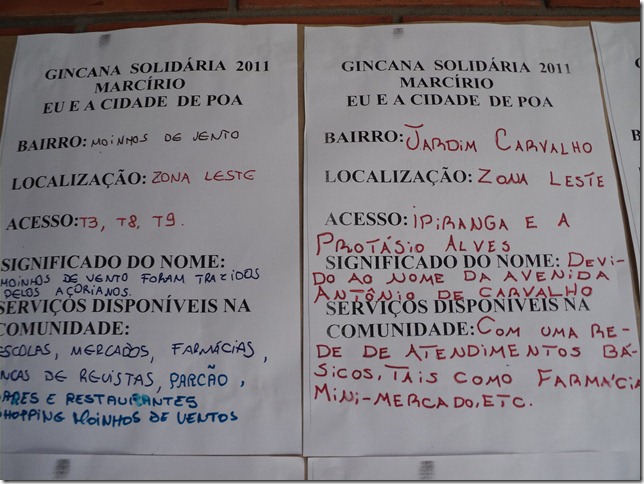 GINCANA SOLIDÁRIA 2011
MARCÍRIO
EU E A CIDADE DE POA
BAIRRO: MOINHOS DE VENTO
LOCALIZAÇÃO: ZONA LESTE
ACESSO: T3, T8, T9.
SIGNIFICADO DO NOME:
MOINHOS DE VENTO FORAM TRAZIDOS
PELOS AÇORIANOS.
SERVIÇOS DISPONÍVEIS NA
COMUNIDADE:
ESCOLAS, MERCADOS, FARMÁCIAS,
NCAS DE REVISTAS, PARCÃO,
ARES E RESTAURANTES
SHOPPING MOINHOS DE VENTOS
GINCANA SOLIDÁRIA 2011
MARCÍRIO
EU E A CIDADE DE POA
BAIRRO: JARDIM CARVALHO
LOCALIZAÇÃO: ZONA LESTE
ACESSO: IPIRANGA E A
PROTÁSIO ALVES
SIGNIFICADO DO NOME: DEVI-
DO AO NOME DA AVENIDA
ANTÔNIO DE CARVALHO
SERVIÇOS DISPONÍVEIS NA
COMUNIDADE: COM UMA RE-
DE DE ATENDIMENTOS BÁ-
SICOS, TAIS COMO FARMÁCIA
MINI-MERCADO, ETC.